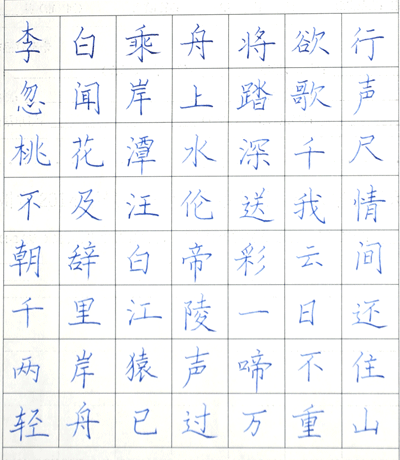 李白乘舟将欲行
忽闻岸上踏歌声
桃花潭水深千尺
不及汪伦送我情
朝辞白帝彩云间
千里江陵一日还
两岸猿声啼不住
轻舟已过万重山